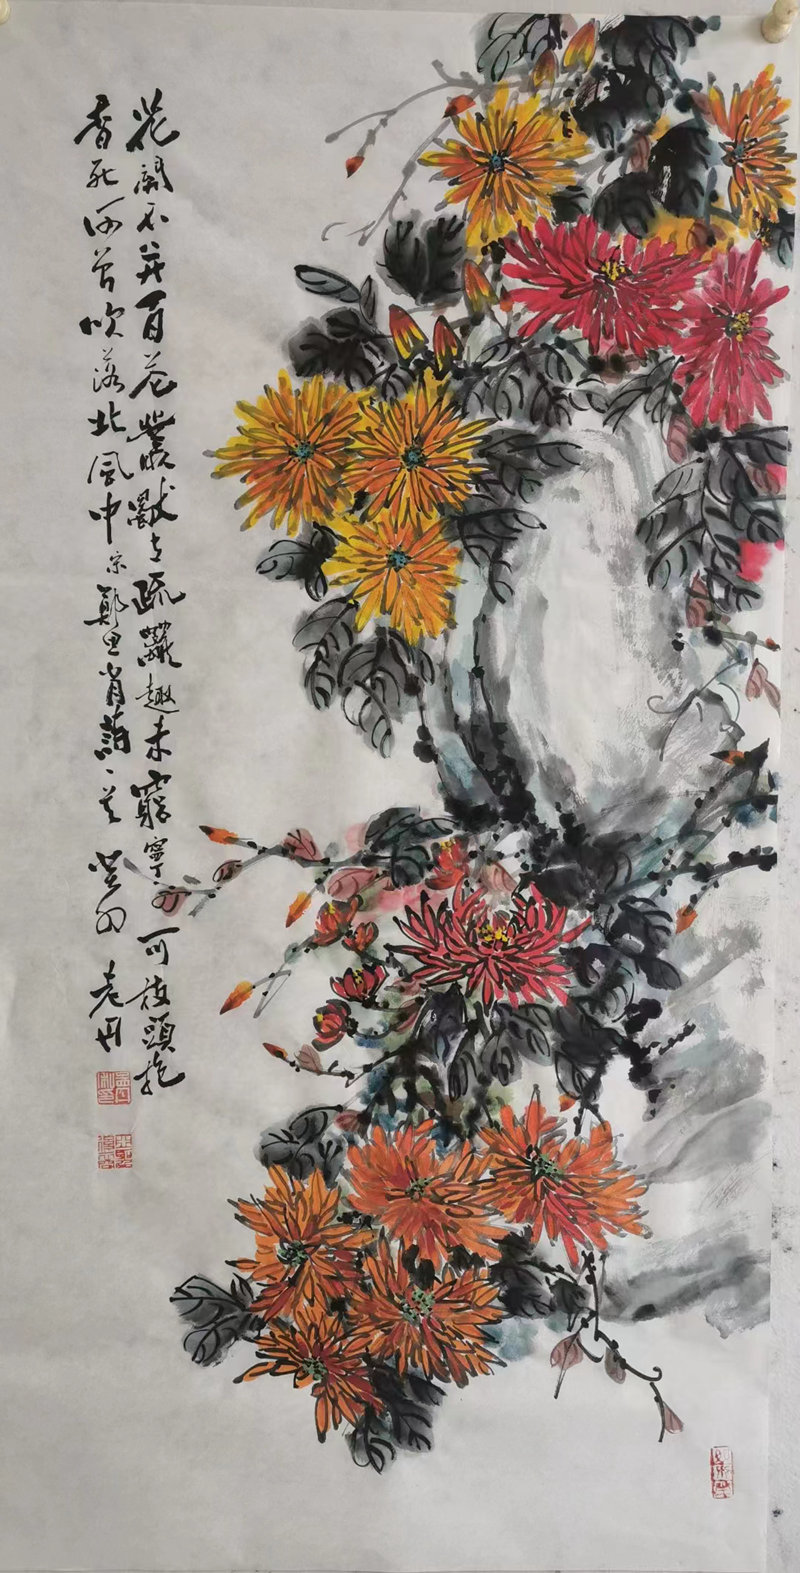 花開不并百花叢獨立疏籬趣未窮寧可枝頭抱
香死何曾吹落北風中宋鄭思肖詩 癸卯 老丹